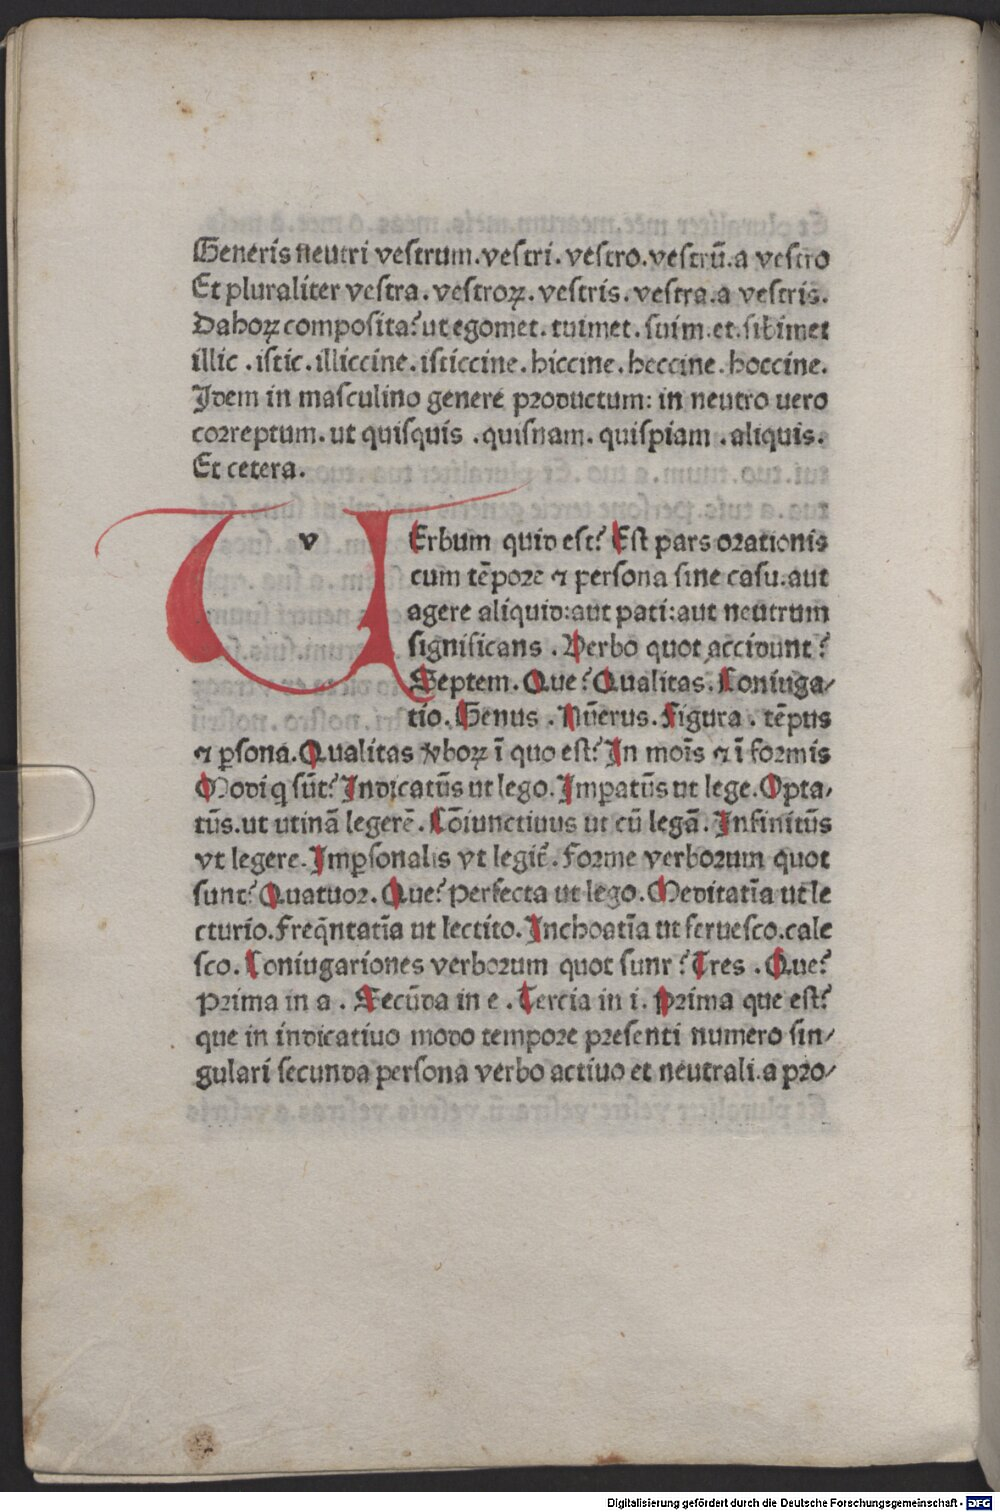 Generis neutri vestrum.vestri.vestro.vestrū.a vestro
Et pluraliter vestra.vestroꝝ.vestris.vestra.a vestris.
Da hoꝝ composita? ut egomet.tuimet.suim.et.sibimet
illic.istic.illiccine.isticcine.hiccine.heccine.hoccine.
Idem in masculino genere productum: in neutro uero
correptum.ut quisquis.quisnam.quispiam.aliquis.
Et cetera.
v Erbum quid est? Est pars orationis
cum tēpore ⁊ persona sine casu.aut
agere aliquid:aut pati:aut neutrum
significans. Verbo quot accidunt?
Septem. Que? Qualitas. Coniuga/
tio. Genus. Nūerus. Figura. tēpus
⁊ ꝑsona. Qualitas ꝟboꝝ ī quo est? In mois̄ ⁊ ī formis
Modi q sūt? Indicatūs ut lego. Imꝑatūs ut lege. Opta/
tūs.ut utinā legerē. Cōiunctiuus ut cū legā. Infinitūs
vt legere. Imꝑsonalis vt legit̄. Forme verborum quot
sunt? Quatuor. Que? Perfecta ut lego. Meditatīa ut le
cturio. Freq̄ntatīa ut lectito. Inchoatīa ut feruesco.cale
sco. Coniugariones verborum quot sunr? Tres. Que?
Prima in a. Secūda in e. Tercia in i. Prima que est?
que in indicatiuo modo tempore presenti numero sin/
gulari secunda persona verbo actiuo et neutrali.a pro/
Digitalisierung gefördert durch die Deutsche Forschungsgemeinschaft - DFG